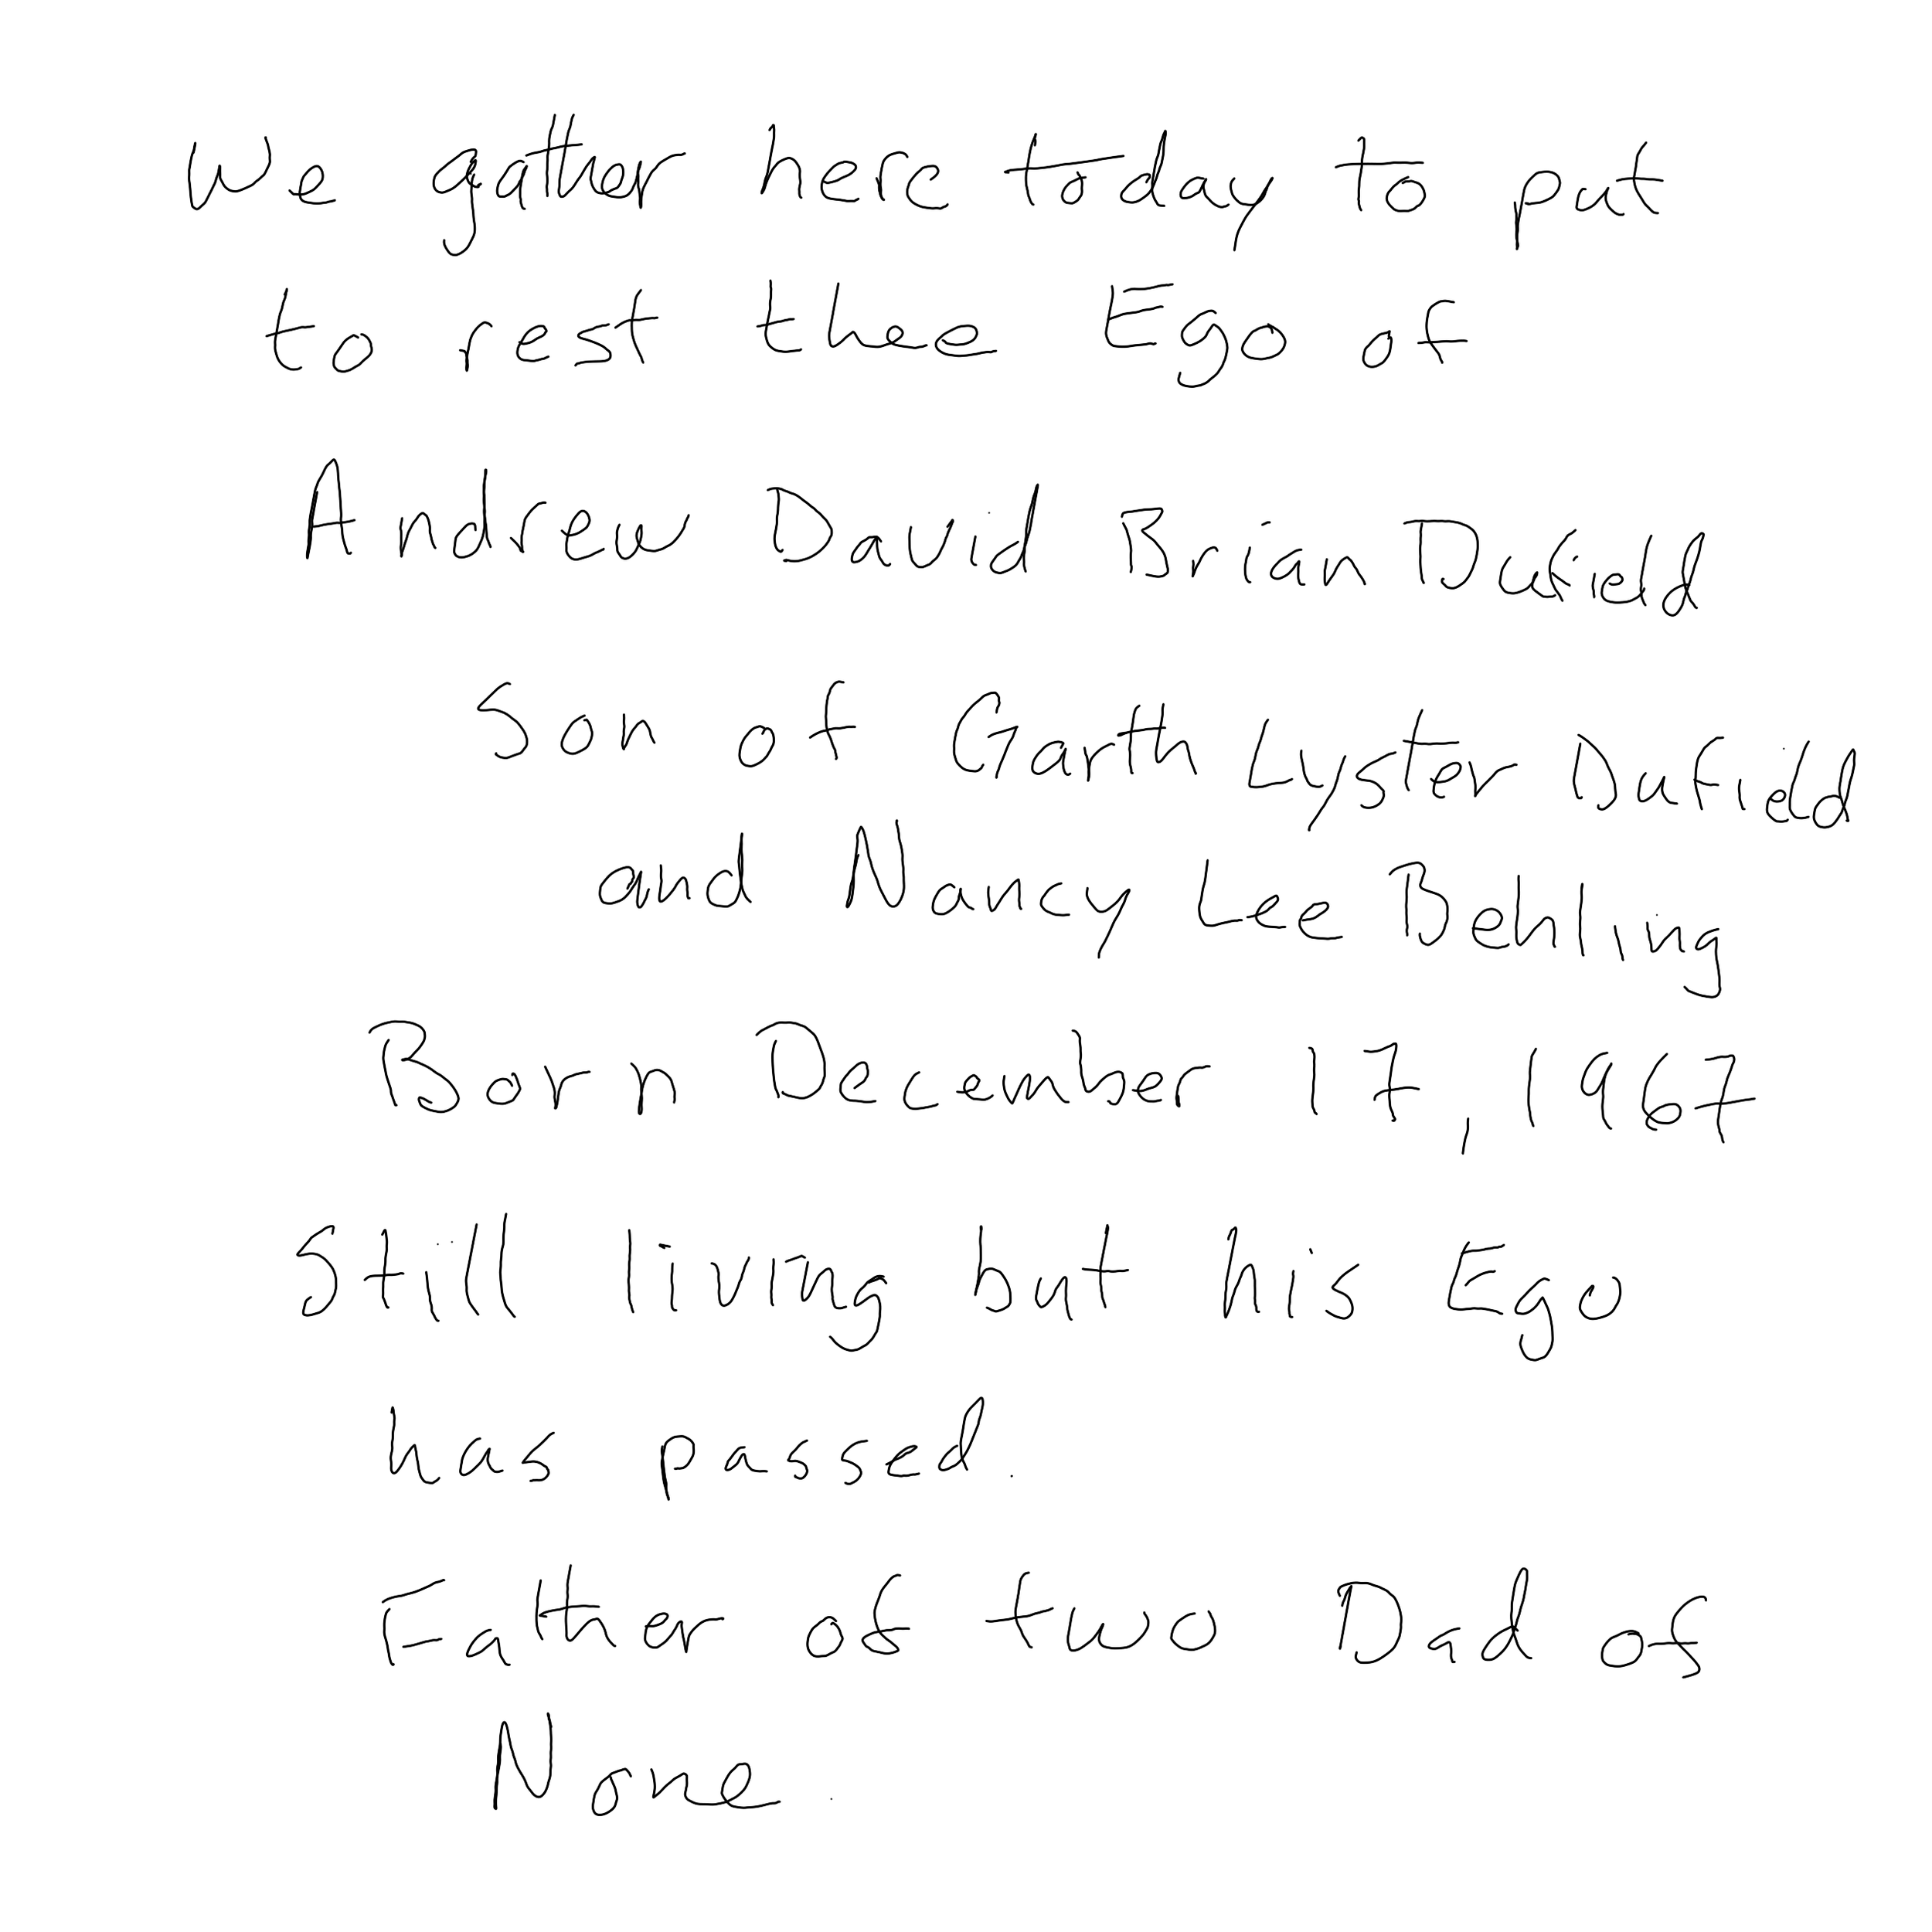 We gather here today to put
to rest thee Ego of
Andrew David Brian Dufield
Son of Garth Lyster Dufield
and Nancy Lee Behling
Born December 17, 1967
Still living but his Ego
has passed.
Father of two Dad of
None.